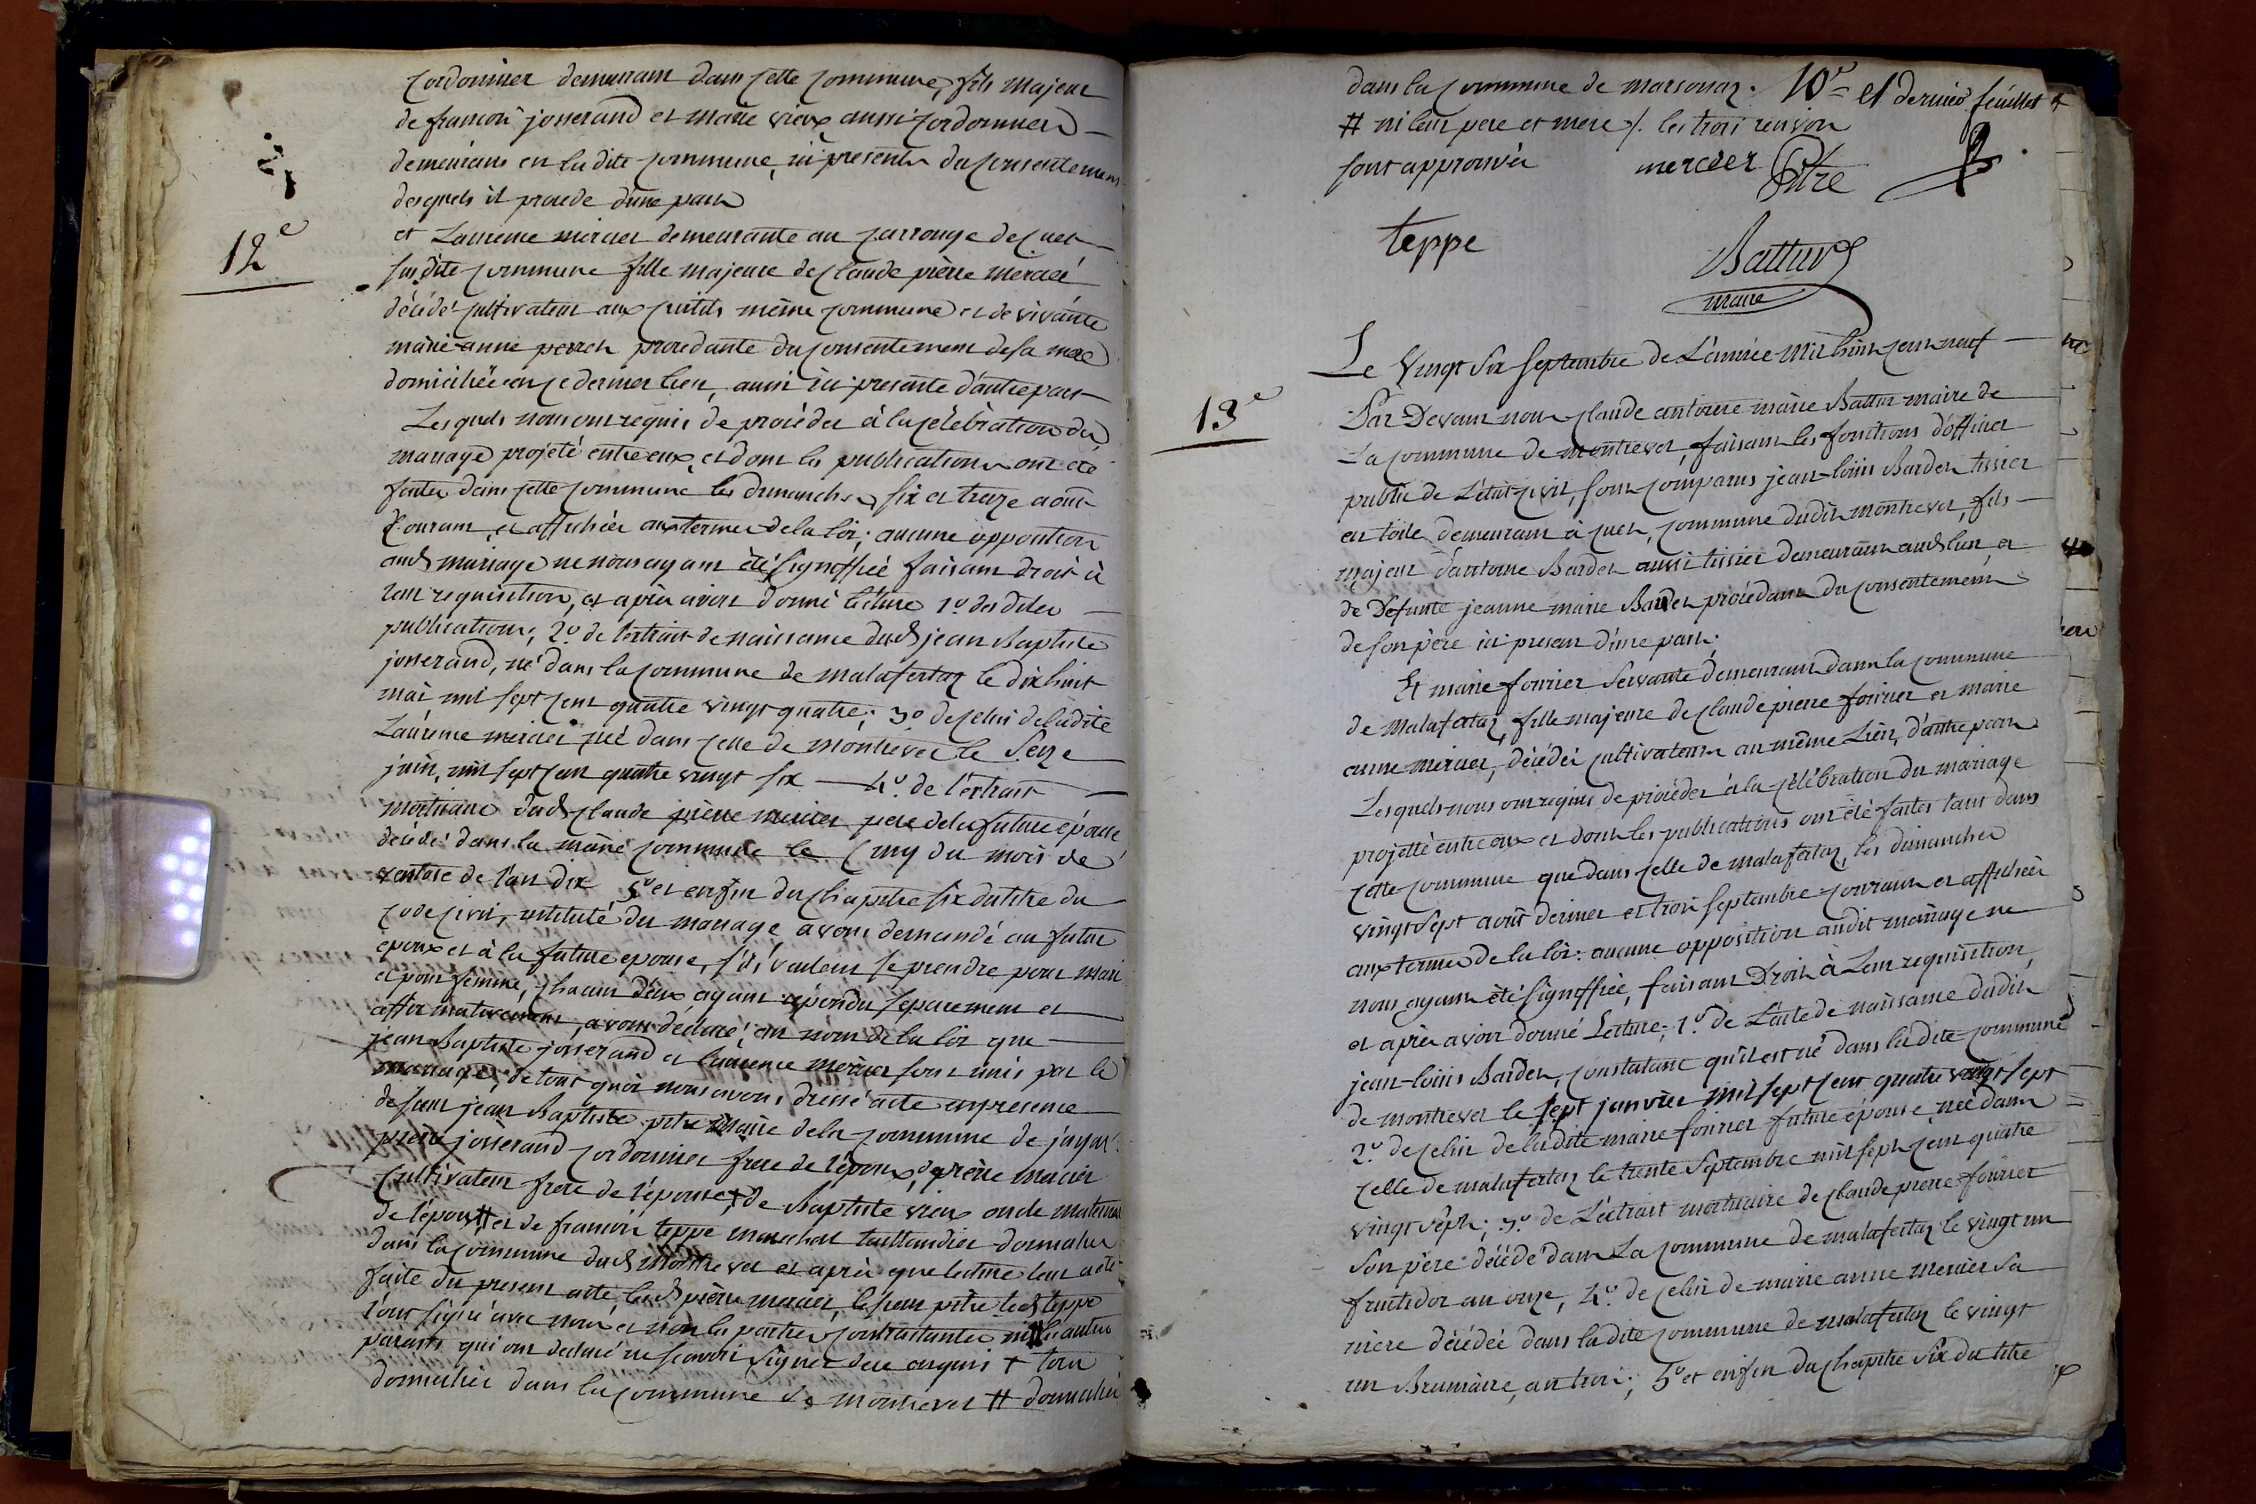 12e
cordonnier demeurant dans cette commune, fils majeur
de francois josserand et marie vieux aussi cordonniers
demeurans en la dite commune, ici presents du consentement
desquels il procede d'une part
et Laurence mercier demeurante au carrouge de cuet
susdite commune fille majeure de claude pierre mercier
décédé cultivateur aux même commune et de vivante
marie anne procedante du consentement de sa mere
domiciliée en ce dernier lieu, aussi ici presente d'autre part
Lesquels nous ont requis de procéder à la célébration du
mariage projeté entre eux, et dont les publications ont été
faites dans cette commune les dimanches six et treize aout
courant, et affichées aux termes de la loi; aucune opposition
aud mariage ne nous ayant été signiffiée faisant droit à
leur requisition, et après avoir donné lecture 1o des dites
publications; 2o de l'extrait de naissance dud jean Baptiste
josserand, né dans la commune de malafertaz le dix huit
mai mil sept cent quatre vingt quatre; 3o de celui de ladite
Laurence mercier née dans celle de montrevel le Seize
juin, mil sept cent quatre vingt six 4o de l'extrait
mortuaire dud claude pierre mercier pere de la future épouse
décédé dans la même commune le cinq du mois de
ventose de l'an dix 5o et enfin du chapitre six du titre du
code civil, intitulé du mariage avons demandé au futur
epoux et à la future epouse, s'ils veulent se prendre pour mari
et pour femme, chacun deux ayant répondu séparement et
affirmativement, avons déclaré, au nom de la loi que
jean Baptiste josserand et laurence mercier sont unis par le
mariage, de tout quoi nous avons dressé acte en presence
de sieur jean Baptiste pitre maire de la commune de jayat
pierre josserand cordonnier frere de l'époux, de pierre mercier
cultivateur frere de l'épouse, de Baptiste vieux oncle maternel
de l'époux # et de francois teppe marechal taillandier domicilié
dans la commune dud montrevel et après que lecture leur a été
faite du present acte, led pierre mercier, le sieur pitre led teppe
l'ont signé avec nous et non les parties contractantes ni # les autres
parents qui ont déclaré ne scavoir signer de ce enquis + tous
domiciliés dans la commune de montrevel # domicilié
dans la commune de marsonnaz. 10e et dernier feuillet
# ni leur pere et mere /. les trois renvois
sont approuvés mercier Pitre
teppe
Battur
maire
13e
Le Vingt six septembre de L'année mil huit cent neuf
Par Devant nous claude antoine marie Battur maire de
La commune de montrevel, faisant les fonctions d'officier
public de L'état civil, sont comparus jean-loüis Bardet tissier
en toile demeurant à cuet, commune dudit montrevel, fils
majeur d'antoine Bardet aussi tissier demeurant aud lieu, et
de Défunte jeanne marie Bardet procédant du consentement
de son père ici present d'une part;
Et marie fournier servante demeurant dans la commune
de Malafertaz, fille majeure de claude pierre fournier et marie
anne mercier, décédés cultivateurs au même Lieu, d'autre part
Lesquels nous ont requis de procéder à la célébration du mariage
projetté entre eux et dont les publications ont été faites tant dans
cette commune que dans celle de malafertaz, les dimanches
vingt sept août dernier et trois septembre courant et affichées
aux termes de la loi: aucune opposition audit mariage ne
nous ayant été signiffiée, faisant Droit à Leur requisition,
et après avoir donné Lecture; 1o de L'acte de naissance dudit
jean-loüis Bardet, constatant qu'il est né dans ladite commune
de montrevel le sept janvier mil sept cent quatre vingt sept
2o de celui de ladite marie fournier future épouse, née dans
celle de malafertaz le trente septembre mil sept cent quatre
vingt sept; 3o de L'extrait mortuaire de claude pierre fournier
son père décédé dans La commune de malafertaz le vingt un
fructidor an onze, 4o de celui de marie anne mercier sa
mère décédée dans la dite commune de malafertaz le vingt
un Brumaire, an trois; 5o et enfin du chapitre six du titre